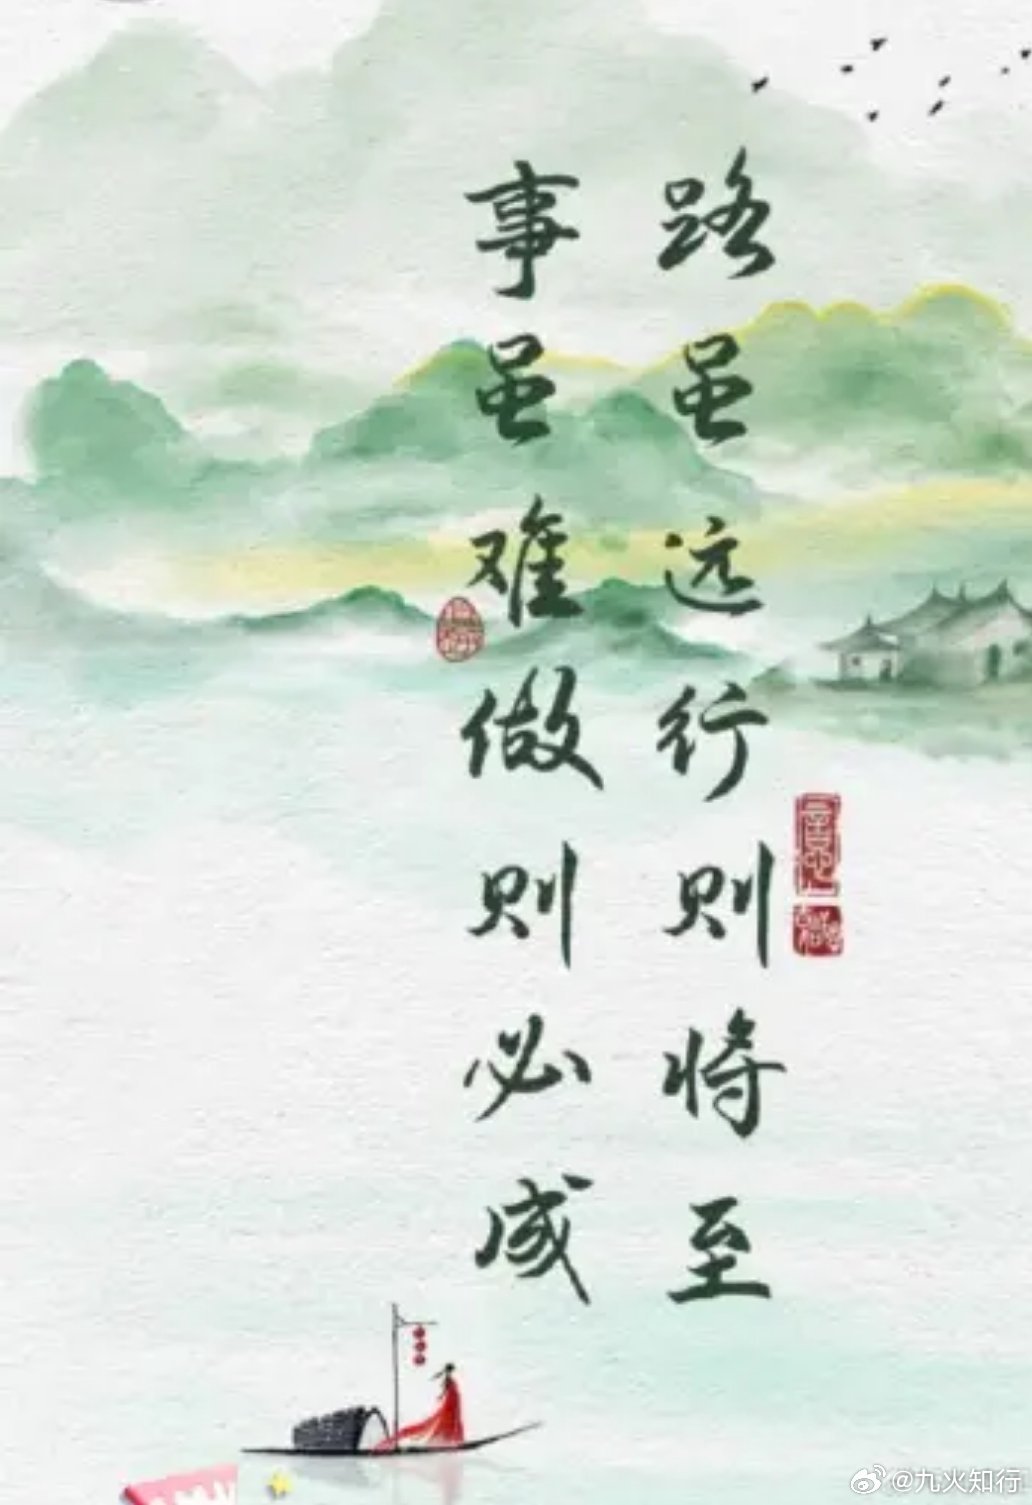 路虽远行则将至
事虽难做则必成
@九火知行